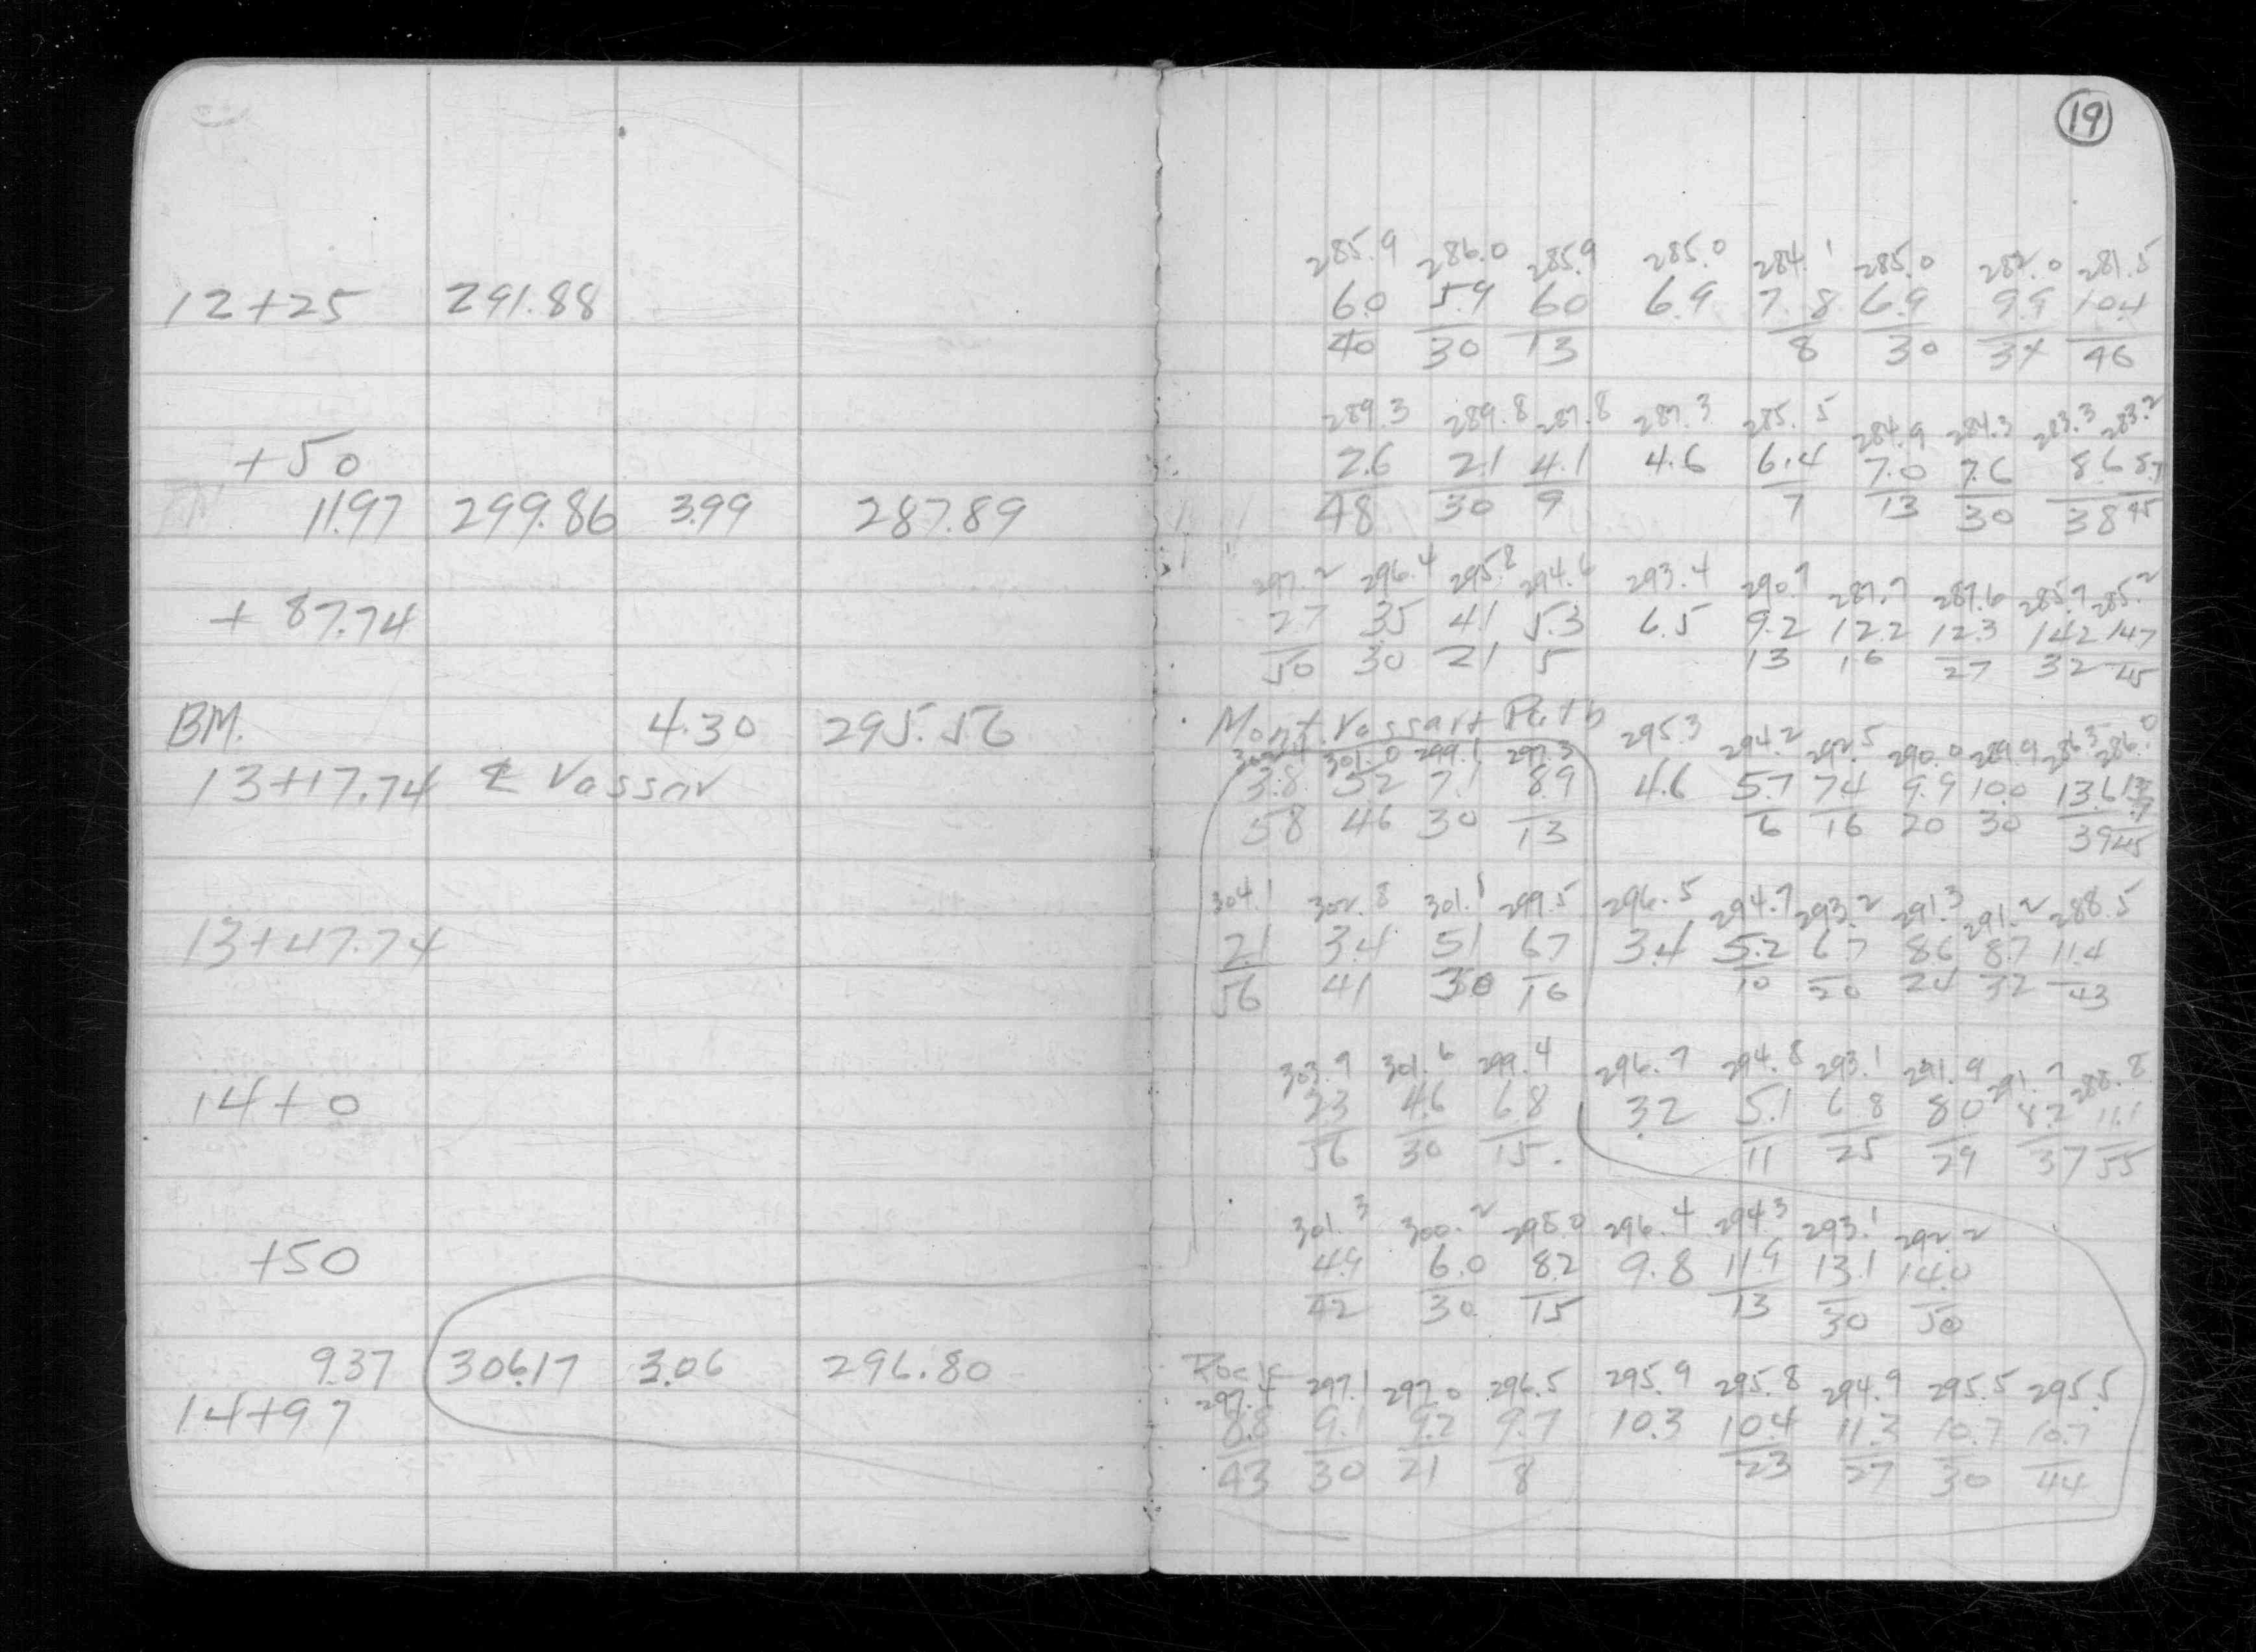 19
12+25 291.88
+50
11.97 299.86 3.99 287.89
+87.74
BM. 4.30 295.56
13+17.74 ℄ Vassar
13+47.74
14+0
+50
9.37 306.17 3.06 296.80
14+97
285.9 286.0 285.9 285.0 284.1 285.0 282.0 281.5
6.0 5.9 6.0 6.9 7.8 6.9 9.9 10.4
40 30 13 8 30 34 46
289.3 289.8 287.8 287.3 285.5 284.9 284.3 283.3 283.2
2.6 2.1 4.1 4.6 6.4 7.0 7.6 8.6 8.7
48 30 9 7 13 30 38 45
297.2 296.4 295.8 294.6 293.4 290.7 287.7 287.6 285.7 285.2
2.7 3.5 4.1 5.3 6.5 9.2 12.2 12.3 14.2 14.7
50 30 21 5 13 16 27 32 45
295.3 294.2 292.5 290.0 289.9 286.3 286.0
301.0 299.1 297.3
3.8 5.2 7.1 8.9 4.6 5.7 7.4 9.9 10.0 13.6
58 46 30 13 6 16 20 30 39 45
304.1 302.8 301.1 299.5 296.5 294.7 293.2 291.3 291.2 288.5
2.1 3.4 5.1 6.7 3.4 5.2 6.7 8.6 8.7 11.4
56 41 30 16 10 20 24 32 43
303.9 301.6 299.4 296.7 294.8 293.1 291.9 291.7 288.8
2.3 4.6 6.8 3.2 5.1 6.8 8.0 8.2 11.1
56 30 15 11 25 29 37 55
301.3 300.2 298.0 296.4 294.3 293.1 292.2
4.9 6.0 8.2 9.8 11.9 13.1 14.0
42 30 15 13 30 50
Rock
297.4 297.1 297.0 296.5 295.9 295.8 294.9 295.5 295.5
8.8 9.1 9.2 9.7 10.3 10.4 11.3 10.7 10.7
43 30 21 8 23 27 30 44